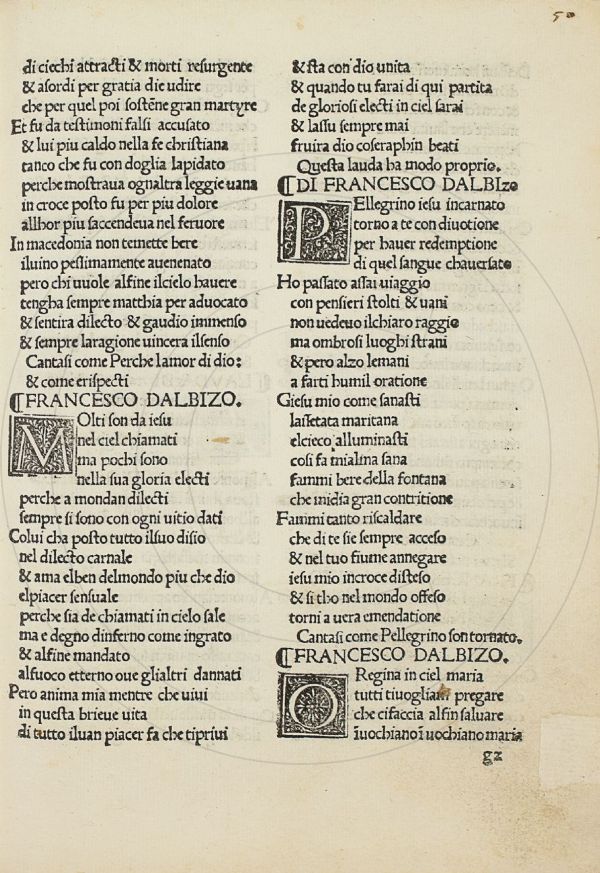 50
di ciechi attracti & morti resurgente
& asordi per gratia die udire
che per quel poi sostēne gran martyre
Et fu da testimoni falsi accusato
& lui piu caldo nella fe christiana
tanco che fu con doglia lapidato
perche mostraua ognaltra leggie uana
in croce posto fu per piu dolore
allhor piu saccendeua nel feruore
In macedonia non temette bere
iluino pessimamente auenenato
pero chi uuole alfine ilcielo hauere
tengha sempre matthia per aduocato
& sentira dilecto & gaudio immenso
& sempre laragione uincera ilsenso
Cantasi come Perche lamor di dio:
& come erispecti
¶FRANCESCO DALBIZO.
MOlti son da iesu
nel ciel chiamati
ma pochi sono
nella sua gloria electi
perche a mondan dilecti
sempre si sono con ogni uitio dati
Colui cha posto tutto ilsuo disio
nel dilecto carnale
& ama elben delmondo piu che dio
elpiacer sensuale
perche sia de chiamati in cielo sale
ma e degno dinferno come ingrato
& alfine mandato
alfuoco etterno oue glialtri dannati
Pero anima mia mentre che uiui
in questa brieue uita
di tutto iluan piacer fa che tipriui
& sta con dio unita
& quando tu farai di qui partita
de gloriosi electi in ciel sarai
& lassu sempre mai
fruira dio coseraphin beati
Questa lauda ha modo proprio.
¶DI FRANCESCO DALBIzo
PEllegrino iesu incarnato
torno a te con diuotione
per hauer redemptione
di quel sangue chauersato
Ho passato assai uiaggio
con pensieri stolti & uani
non uedeuo ilchiaro raggio
ma ombrosi luoghi strani
& pero alzo lemani
a farti humil oratione
Giesu mio come sanasti
lassetata maritana
elcieco alluminasti
cosi fa mialma sana
fammi bere della fontana
che midia gran contritione
Fammi tanto riscaldare
che di te sie sempre acceso
& nel tuo fiume annegare
iesu mio incroce disteso
& si tho nel mondo offeso
torni a uera emendatione
Cantasi come Pellegrino son tornato.
¶FRANCESCO DALBIZO.
O Regina in ciel maria
tutti tiuogliam pregare
che cifaccia alfin saluare
īuochiano ī uochiano maria
g2